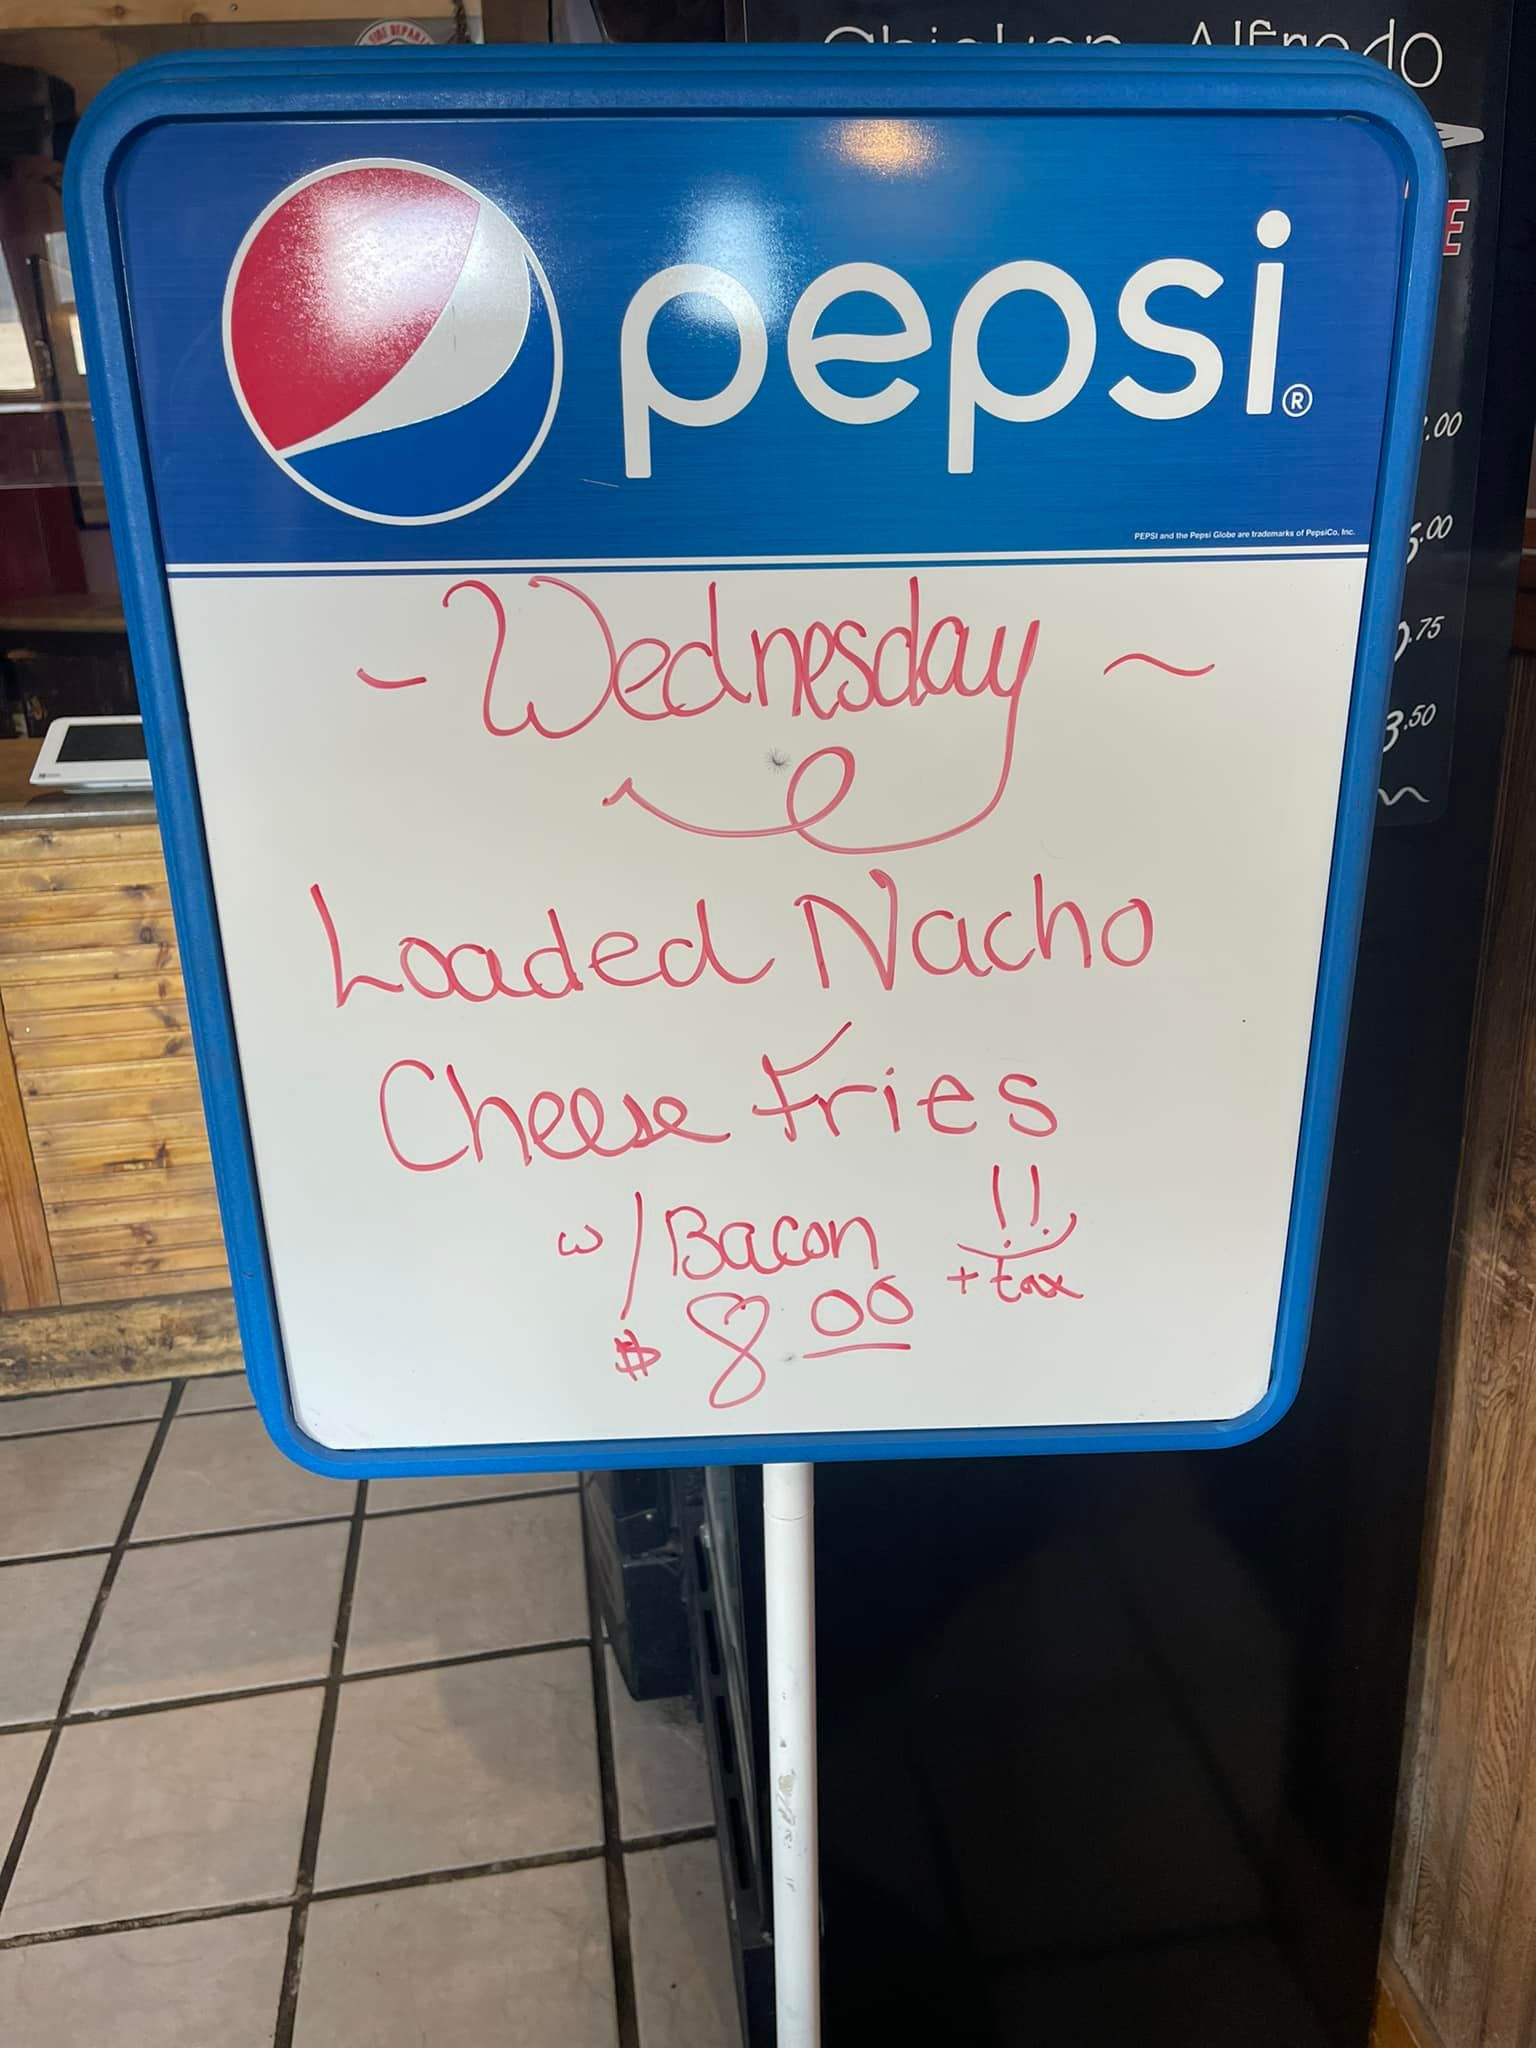 FIRE DEPART
Chicken Alfredo
pepsi®
E
.00
PEPSI and the Pepsi Globe are trademarks of PepsiCo, Inc.
.00
~ Wednesday ~
.75
3.50
Loaded Nacho
Cheese Fries
w/Bacon !!
$8.00 + tax